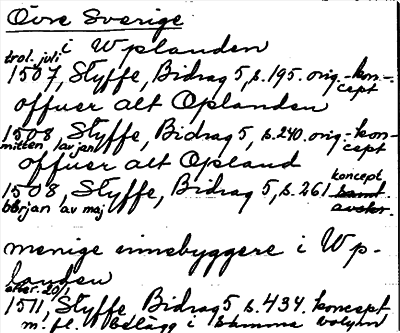 Övre Sverige
i Wplanden
trol. juli
1507, Styffe, Bidrag 5, s. 195. orig.-kon-
cept
offuer alt Oplanden
1508, Styffe, Bidrag 5, s. 240. orig.-kon-
mitten av jan cept
offuer alt Opland
koncept
1508, Styffe, Bidrag 5, s. 261 samt.
början av maj avskr.
menige innebyggere i Wp-
landen
efter 20/1
1511, Styffe Bidrag 5 s. 434. koncept
m. fl. belägg i samma volym